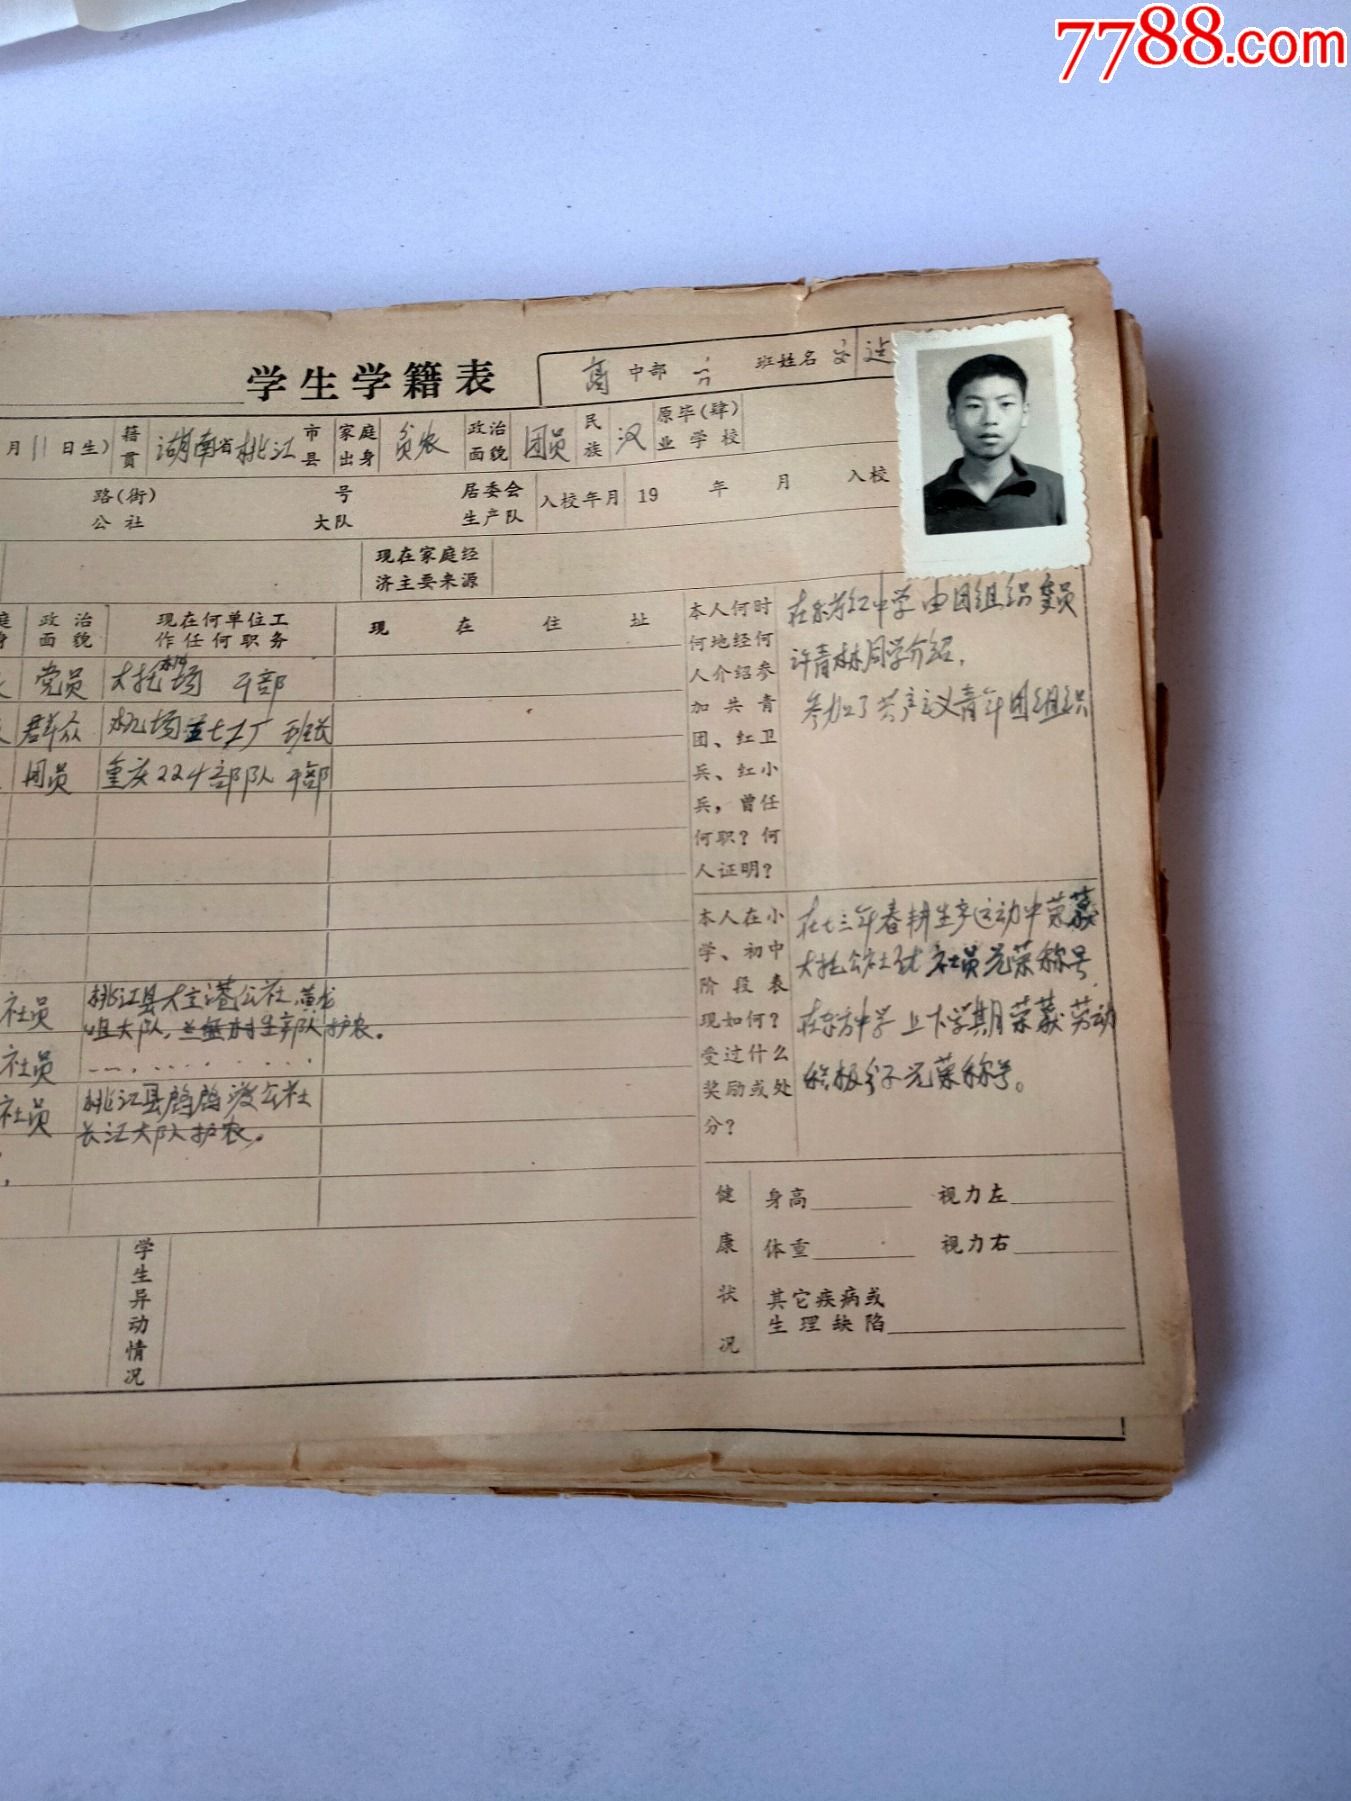 7788.com
学生学籍表
高 中部 六 班 姓名
月11日生) 籍贯 湖南省桃江 市县 家庭出身 贫农 政治面貌 团员 民族 汉 原毕(肄)业学校
路(街) 号 居委会 入校年月 19 年 月 入校
公社 大队 生产队
现在家庭经济主要来源
政治面貌 现在何单位工作任何职务 现在住址
党员 大托机场 干部
群众 机场 七工厂 班长
团员 重庆224部队 干部
社员 桃江县大立港公社,黄龙
咀大队, 生产队护农。
社员
社员 桃江县鸬鸬渡公社
长江大队护农。
学生异动情况
本人何时何地经何人介绍参加共青团、红卫兵、红小兵,曾任何职?何人证明?
在东方红中学由团组织委员
许青林同学介绍,
参加了共产主义青年团组织
本人在小学、初中阶段表现如何?受过什么奖励或处分?
在七三年春耕生产运动中荣获
大托公社 社员光荣称号,
在东方中学上下学期荣获劳动
积极分子光荣称号。
健康状况
身高 视力左
体重 视力右
其它疾病或
生理缺陷